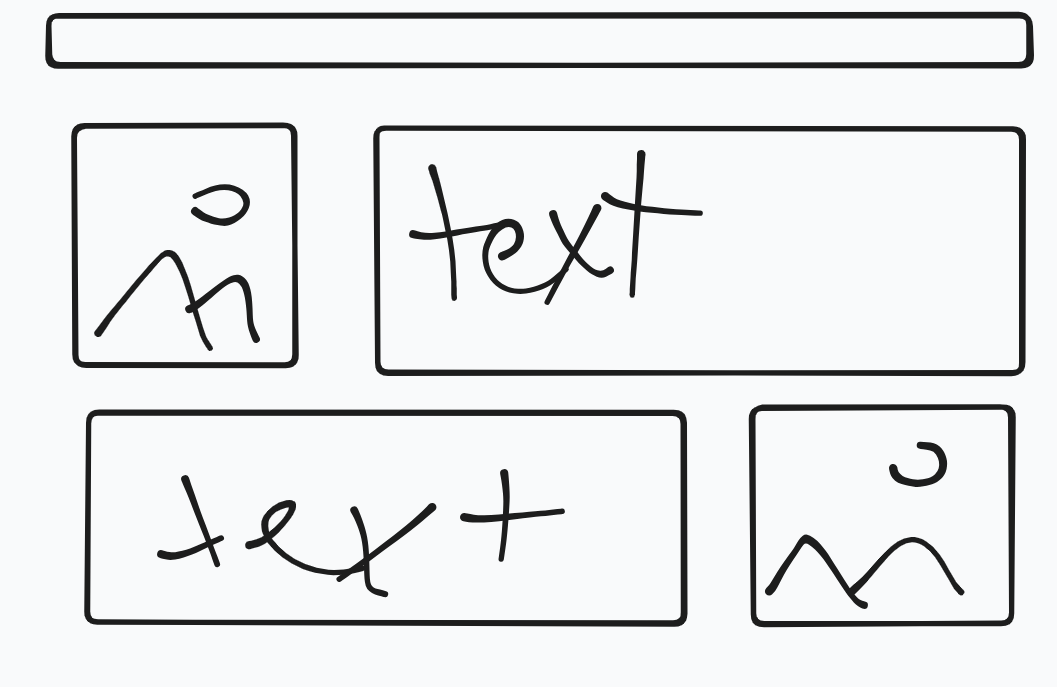 text
text